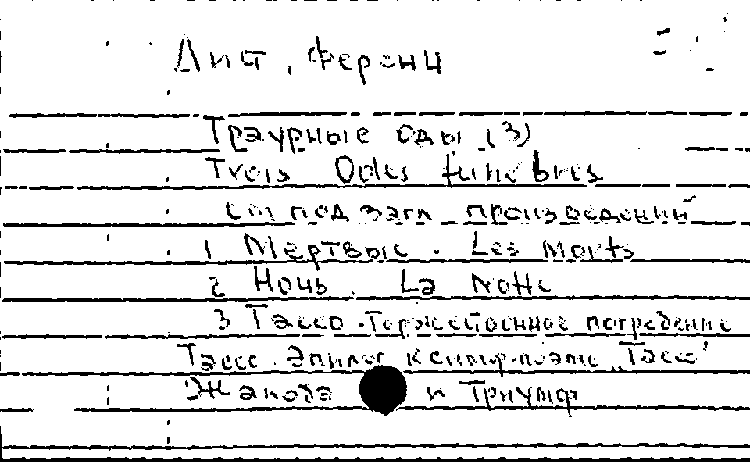 Лист, Ференц
Траурные оды (3)
Trois Odes funèbres
см под загл произведений
1 Мертвые. Les Morts
2 Ночь. La Notte
3 Тассо. Торжественное погребение
Тассо. Эпилог к симф. поэме „Тассо"
Жалоба и Триумф